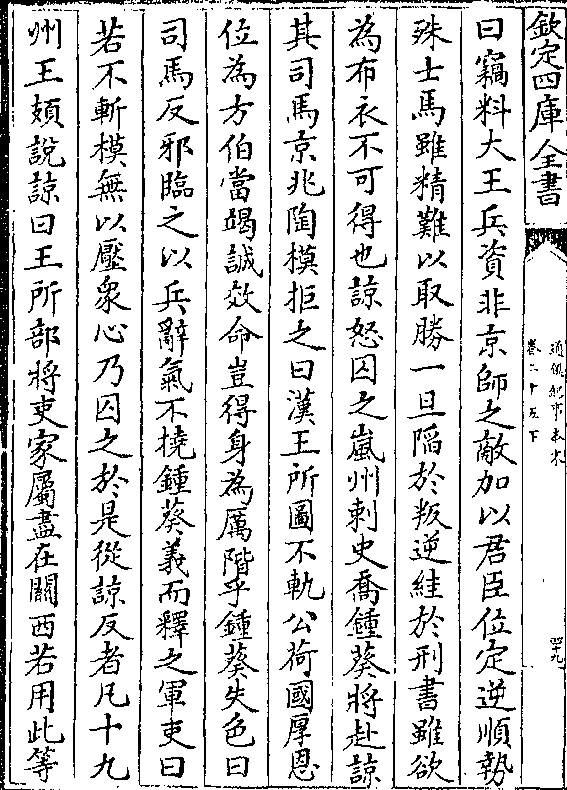 欽定四庫全書
通鑑紀事本末
卷二十五下
四十九
曰竊料大王兵資非京師之敵加以君臣位定逆順勢
殊士馬雖精難以取勝一旦陷於叛逆絓於刑書雖欲
為布衣不可得也諒怒囚之嵐州刺史喬鍾葵將赴諒
其司馬京兆陶模拒之曰漢王所圖不軌公荷國厚恩
位為方伯當竭誠效命豈得身為厲階乎鍾葵失色曰
司馬反邪臨之以兵辭氣不撓鍾葵義而釋之軍吏曰
若不斬模無以壓衆心乃囚之於是從諒反者凡十九
州王頍說諒曰王所部將吏家屬盡在關西若用此等